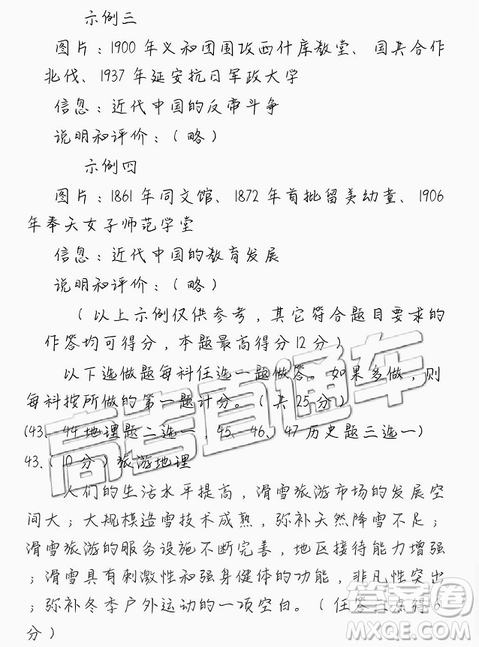 示例三
图片：1900 年义和团围攻西什库教堂、国共合作
北伐、1937 年延安抗日军政大学
信息：近代中国的反帝斗争
说明和评价：（略）
示例四
图片：1861 年同文馆、1872 年首批留美幼童、1906
年奉天女子师范学堂
信息：近代中国的教育发展
说明和评价：（略）
（以上示例仅供参考，其它符合题目要求的
作答均可得分，本题最高得分12 分）
以下选做题每科任选一题做答。如果多做，则
每科按所做的第一题计分。（共 25 分）
(43、44 地理题二选一，45、46、47 历史题三选一)
43.（10 分）旅游地理
人们的生活水平提高，滑雪旅游市场的发展空
间大；大规模造雪技术成熟，弥补天然降雪不足；
滑雪旅游的服务设施不断完善，地区接待能力增强
；滑雪具有刺激性和强身健体的功能，非凡性突出
；弥补冬季户外运动的一项空白。（任答三点得 6
分）
高考直通车
答案圈
MXQE.COM